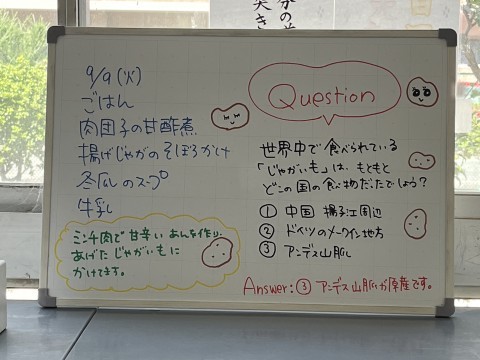 9/9(火)
ごはん
肉団子の甘酢煮
揚げじゃがのそぼろかけ
冬瓜のスープ
牛乳
ミンチ肉で甘辛いあんを作り、
あげたじゃがいもに
かけてます。
Question
世界中で食べられている
「じゃがいも」は、もともと
どこの国の食べ物だったでしょう?
① 中国 揚子江周辺
② ドイツのメークイン地方
③ アンデス山脈
Answer:③ アンデス山脈が原産です。